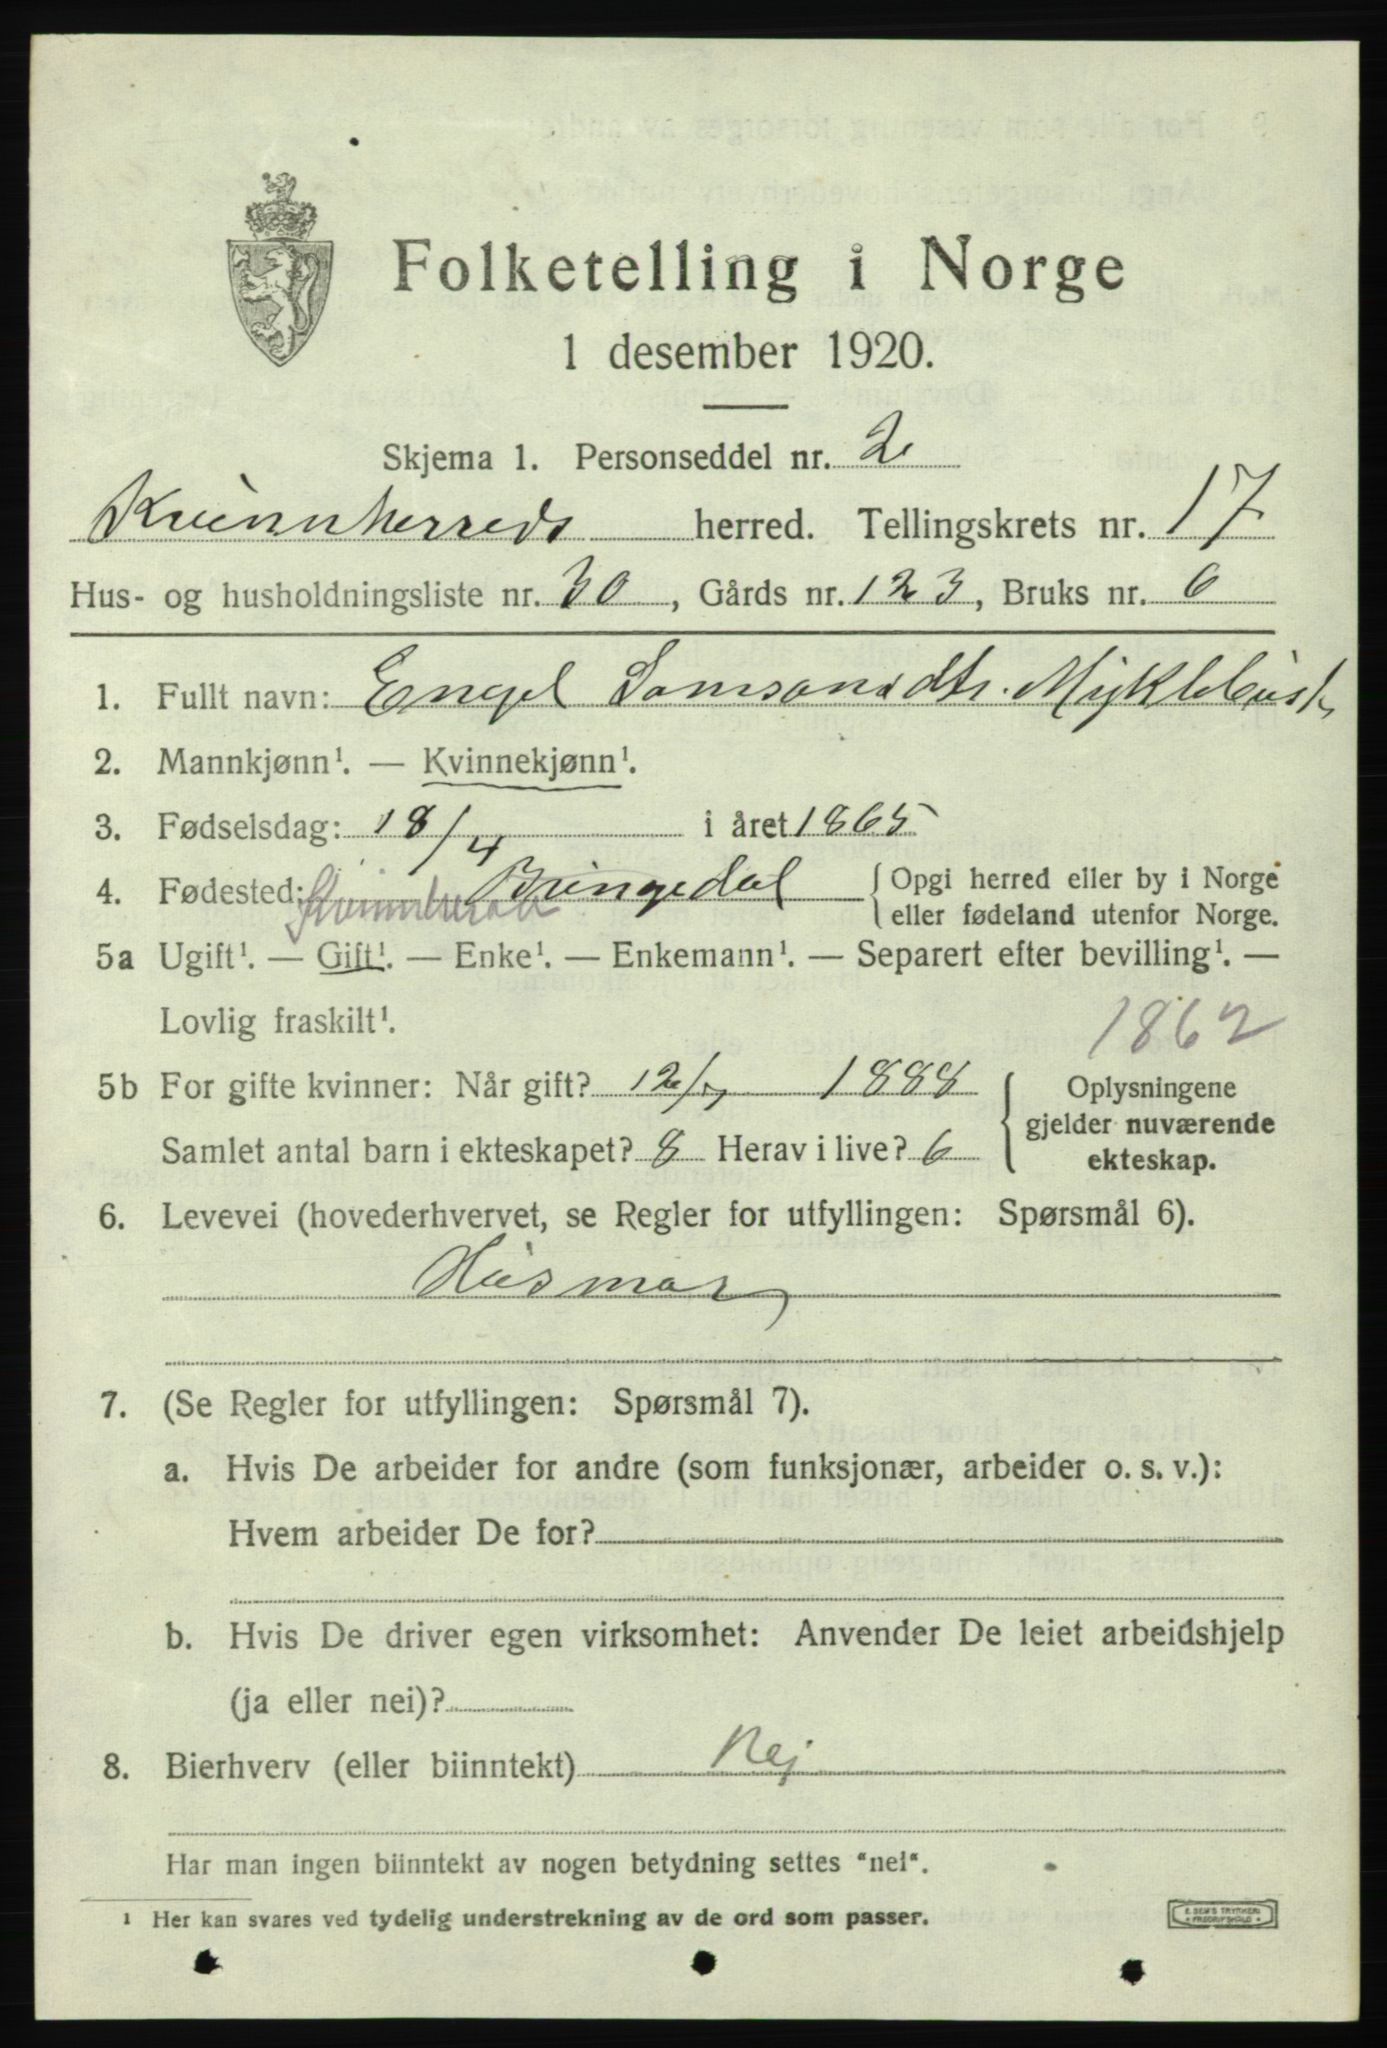 Folketelling i Norge
1 desember 1920.
Skjema 1. Personseddel nr. 2
Kvinnherreds herred. Tellingskrets nr. 17
Hus- og husholdningsliste nr. 30, Gårds nr. 123, Bruks nr. 6
1. Fullt navn: Engel Samsonsdtr. Myklebust
2. Mannkjønn¹. — Kvinnekjønn¹.
3. Fødselsdag: 18/4 i året 1865
4. Fødested: Bringedal {Opgi herred eller by i Norge
eller fødeland utenfor Norge.
5a Ugift¹. — Gift¹. — Enke¹. — Enkemann¹. — Separert efter bevilling¹. —
Lovlig fraskilt¹.
1862
5b For gifte kvinner: Når gift? 12/7 1888 { Oplysningene
gjelder nuværende
Samlet antal barn i ekteskapet? 8 Herav i live? 6
ekteskap.
6. Levevei (hovederhvervet, se Regler for utfyllingen: Spørsmål 6).
Husmor
7. (Se Regler for utfyllingen: Spørsmål 7).
a. Hvis De arbeider for andre (som funksjonær, arbeider o. s. v.):
Hvem arbeider De for?
b. Hvis De driver egen virksomhet: Anvender De leiet arbeidshjelp
(ja eller nei)?
8. Bierhverv (eller biinntekt) Nej
Har man ingen biinntekt av nogen betydning settes "nei".
¹ Her kan svares ved tydelig understrekning av de ord som passer.
E. SEM'S TRYKKERI
FREDRIKSHALD